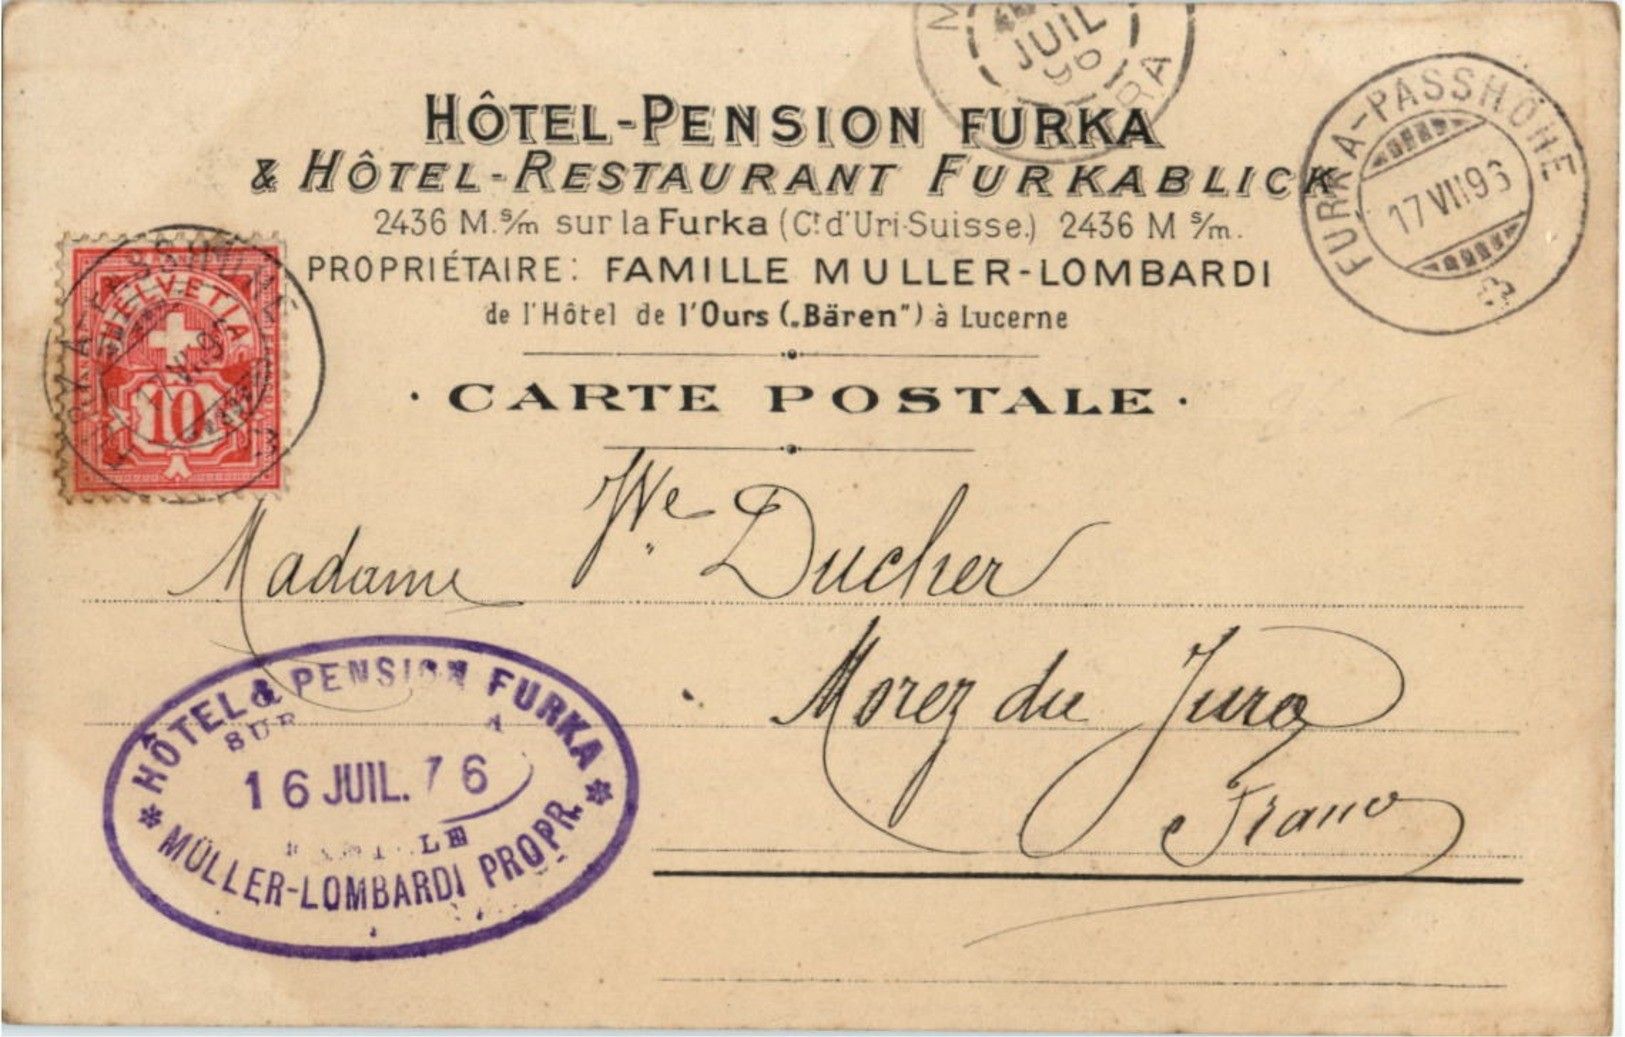 JUIL
96
HÔTEL-PENSION FURKA
& HÔTEL-RESTAURANT FURKABLICK
2436 M. s/m sur la Furka (Ct d'Uri-Suisse.) 2436 M s/m.
PROPRIÉTAIRE: FAMILLE MULLER-LOMBARDI
de l'Hôtel de l'Ours („Bären") à Lucerne
· CARTE POSTALE ·
FURKA-PASSHÖHE
17 VII 96
HELVETIA
10
Madame Vve Ducher
Morez du Jura
France
HÔTEL & PENSION FURKA
SUR
16 JUIL. 6
MÜLLER-LOMBARDI PROPR.